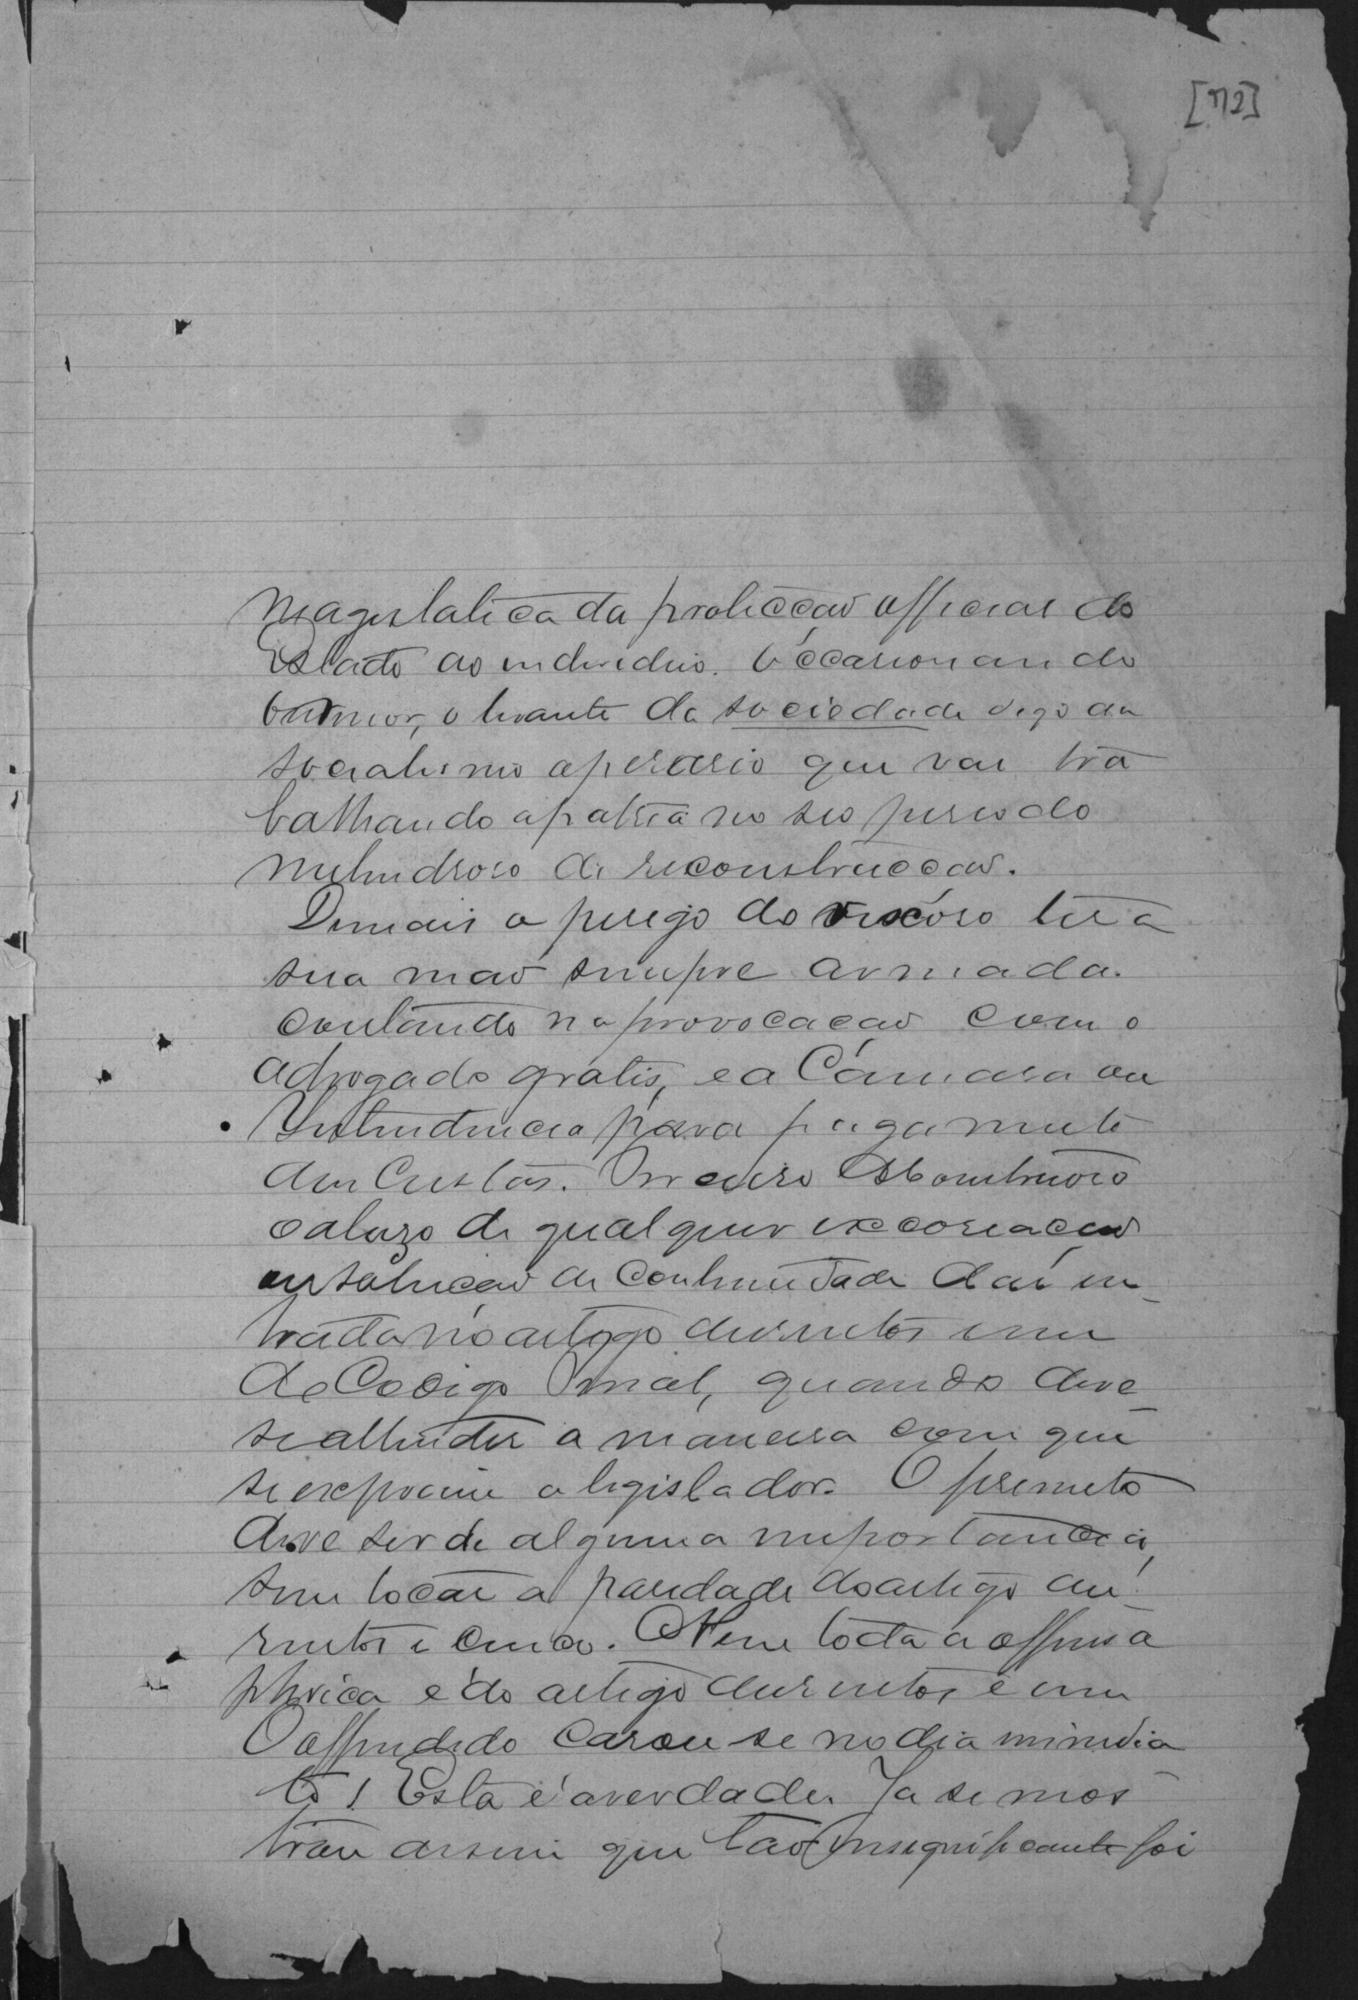 [72]
magestatica da protecção official do
Estado ao individuo. Occasionando
tumor, o levante da sociedade digo da
socialismo operario que vai tra
balhando a patria no seo periodo
melindroso de reconstrucção.
Demais o perigo do ter a
sua mão sempre armada.
contando na provocação com o
advogado gratis, e a Cámara ou
Intendencia para pagamento
das Custas. Preciso
de qualquer excoriação
ou solução de continuidade dar en_
trada no artigo duzentos e um
do Codigo Penal, quando deve
se attender a maneira com que
se exprime o legislador. O
deve ser de alguma importancia,
sem tocar a paridade do artigo du_
zentos e cinco. Nem toda a offensa
phsica é do artigo duzentos e um
O offendido casou se no dia immedia
to! Esta é a verdade. Ja se mos
trou assim que tão insignificante foi